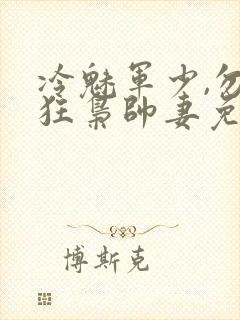 冷魅軍少,勿
狂梟帥妻免
博斯克